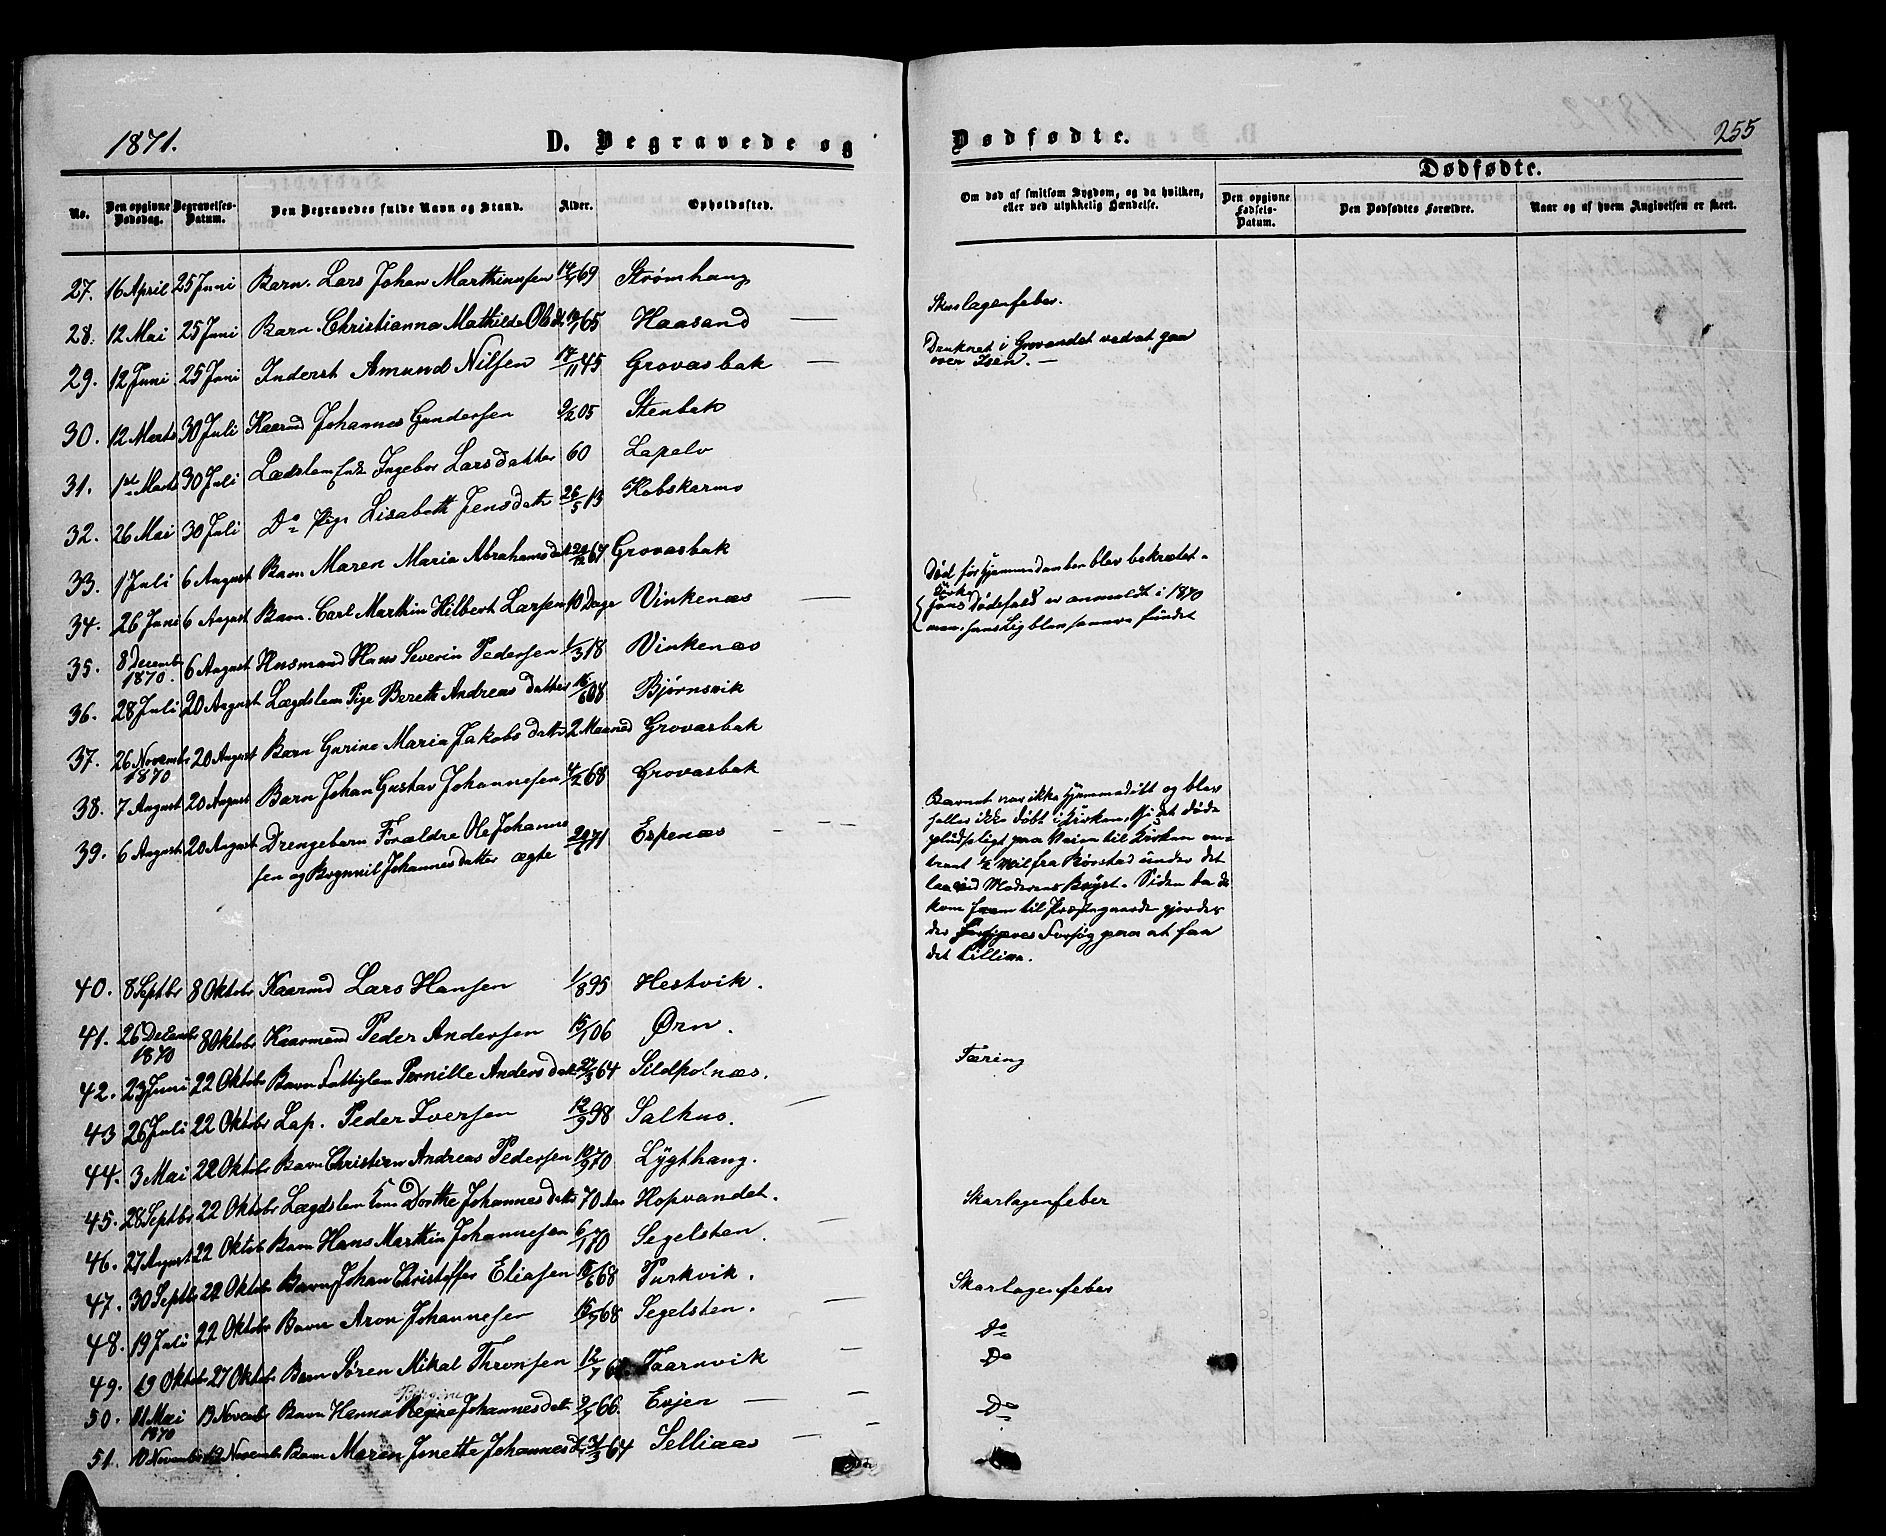 1871.
D. Begravede og
Dødfødte.
255
Dødfødte.
No.
Den opgivne Dødsdag.
Begravelses-Datum.
Den Begravedes fulde Navn og Stand.
Alder.
Opholdssted.
Om død af smitsom Sygdom, og da hvilken, eller ved ulykkelig Hændelse.
Den opgivne Fødsels-Datum.
Den Dødfødtes Forældre.
Naar og af hvem Angivelsen er skeet.
27. 16 April 25 Juni Barn. Lars Johan Marthinussen 69 Strømhaug
28. 12 Mai 25 Juni Barn. Christianna Mathilde 65 Haasand — Skarlagenfeber.
29. 12 Juni 25 Juni Inderst Amund Nilsen 45 Grovasbak — Druknet i Grovandet ved at gaa
over Isen. —
30. 12 Marts 30 Juli Kaarmd Johannes Gundersen 9/2 05 Stenbak
31. 1ste Marts 30 Juli Ingebor Larsdatter 60 Lapelv
32. 26 Mai 30 Juli Do Pige Lisabeth Jensdatr 26/5 13 Kobskarmo
33. 1 Juli 6 August Barn Maren Maria Abrahamsdat 67 Grovasbak
34. 26 Juni 6 August Barn. Carl Martin Hilbert Larsen 10 Dage Vinkenæs — Død før Hjemmedaaben blev bekræftet.
35. 8 Decemb 1870. 6 August Husmand Hans Severin Pedersen 1/3 18 Vinkenæs
{ Dødsfald er anmeldt i 1870
men hans Lig blev fundet
36. 28 Juli 20 August Lægdslem Pige Bereth Andreasdatter 08 Bjørnsvik
37. 26 Novembr 1870 20 August Barn Gurine Maria Jakobsdatr 2 Maaned Grovasbak
38. 7 August 20 August Barn Johan Gustav Johannesen 4/2 68 Grovasbak
39. 6 August 20 August Drengebarn Forældre Ole Johanne
sen og Johannesdatter ægte 71 Espenæs - — —
Barnet var ikke hjemmedøbt og blev
heller ikke døbt i Kirken, det døde
pludseligt paa Veien til Kirken om-
trent ½ Mil fra under det
laa ved Moderens Bryst. Siden da de
kom frem til Præstegaarde gjordes
der Forgjæves Forsøg paa at faa
det tillive.
40. 8 Septbr 8 Oktobr Kaarmd Lars Hansen 1/8 95 Hestvik.
41. 26 Decembr 1870 8 Oktobr Kaarmand Peder Andersen 15/1 06 Ørn.
42. 23 Juni 22 Oktobr Barn Fattiglem Pernille Andersdatr 27/3 64 Sildpolnæs. Tæring
43 26 Juli 22 Oktobr Lap. Peder Iversen 12/9 98 Salhus. —
44. 3 Mai 22 Oktobr Barn Christian Andreas Pedersen 70 Lygthaug.
45. 28 Septbr 22 Oktobr Lægdslem Dorthe Johannesdatr 70 Aar Hopvandet.
46. 27 August 22 Oktob Barn Hans Marthin Johannesen 6/1 70 Segelsten. — Skarlagenfeber
47. 30 Septbr 22 Oktob Barn Johan Christoffer Eliasen 68 Purkvik.
48. 19 Juli 22 Oktobr Barn Aron Johannesen 68 Segelsten. — Skarlagenfeber
49. 19 Oktobr 27 Oktobr Barn Søren Mikal Thronsen 12/7 Taarnvik — Do
50. 11 Mai 1870 13 Novembr Barn Hanna Regine Johannesdat. 66. Evjen — — Do
51. 10 Novembr 19 Novembr Barn Maren Jonette Johannesd. 64 Selliaas — Do